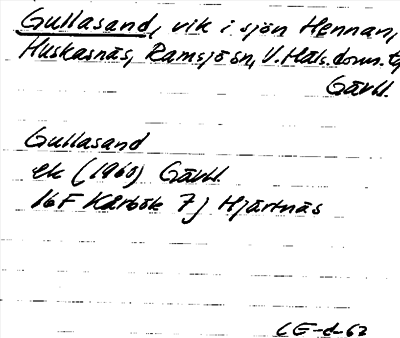 Gullasand, vik i sjön Hennan,
Huskasnäs, Ramsjö sn, V. Häls. doms.
Gävl.
Gullasand
ek (1960) Gävl.
16F Kårbök 7j Hjärtnäs
CE-d-62